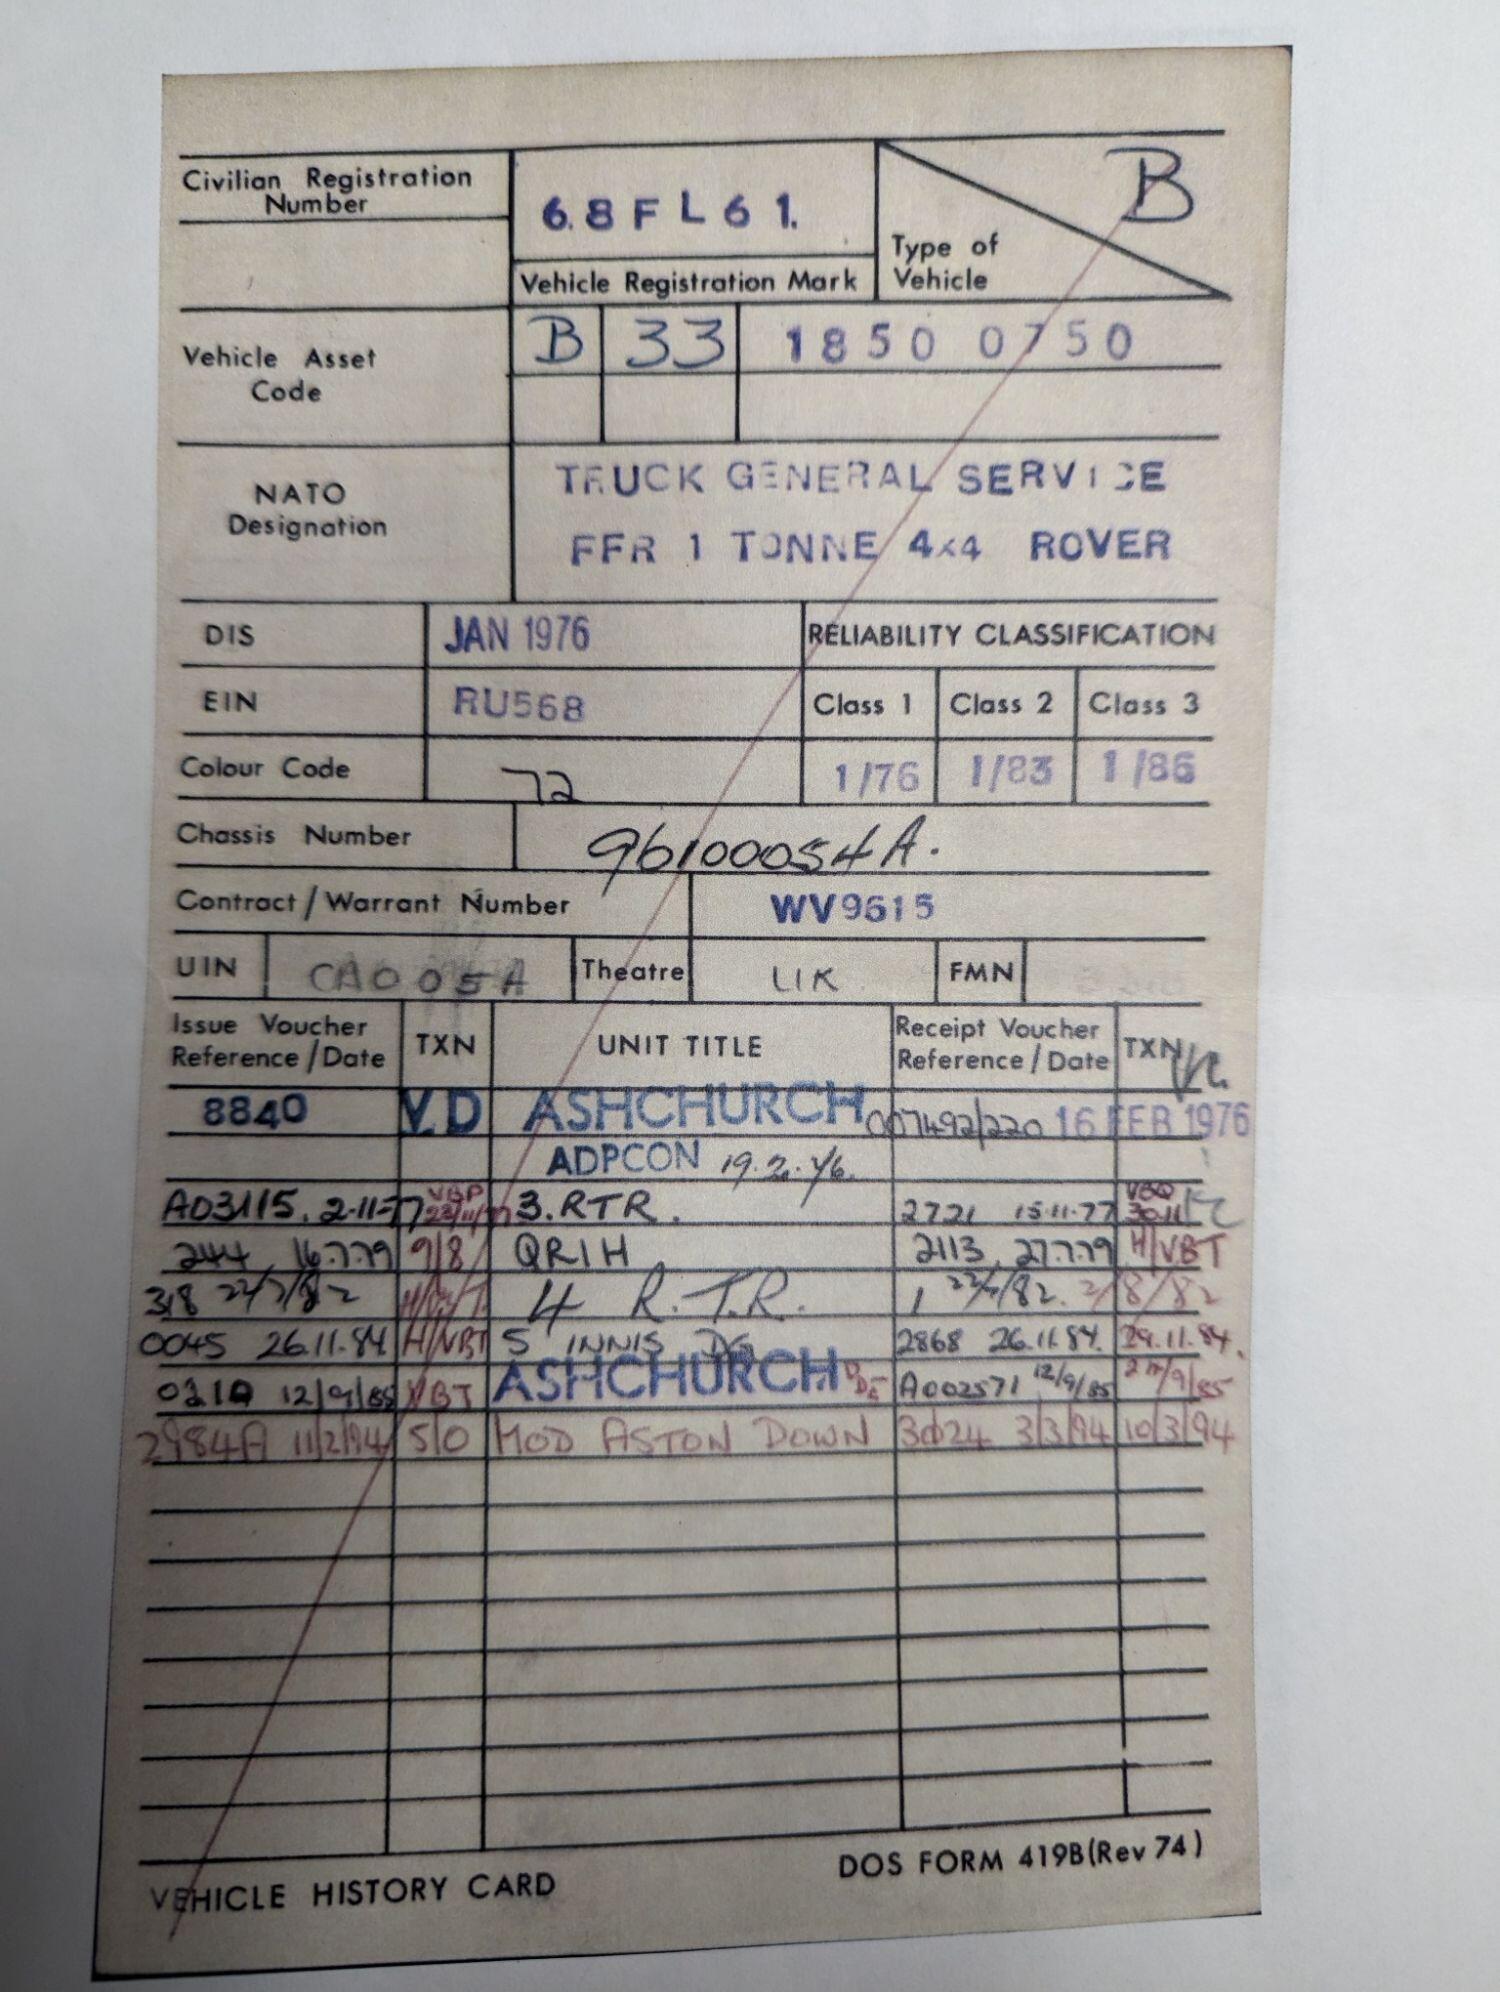 Civilian Registration
Number
68FL61.
B
Type of
Vehicle
Vehicle Registration Mark
Vehicle Asset
Code
B 33 1850 0750
NATO
Designation
TRUCK GENERAL SERVICE
FFR 1 TONNE 4x4 ROVER
DIS JAN 1976 RELIABILITY CLASSIFICATION
EIN RU568 Class 1 Class 2 Class 3
Colour Code 72 1/76 1/83 1/86
Chassis Number 96100054A.
Contract/Warrant Number WV9615
UIN CA005A Theatre UK FMN
Issue Voucher
Reference/Date
TXN
UNIT TITLE
Receipt Voucher
Reference/Date
TXN
8840 V.D ASHCHURCH 007492/220 16 FEB 1976
ADPCON 19.2.76.
A03115. 2-11-77 VBP 23/11/77 3.RTR. 2721 15.11.77 VBQ 30.11
244 16.7.79 9/8 QRIH 2113 27.7.79 H/VBT
318 4 R.T.R. 1 2/8/82
0045 26.11.84 H/VBT 5 INNIS DG 2868 26.11.84. 29.11.84.
12/9/85 VBT ASHCHURCH A002571 12/9/85
2984A 11/2/94 S/O MOD ASTON DOWN 3024 3/3/94 10/3/94
VEHICLE HISTORY CARD
DOS FORM 419B(Rev 74)